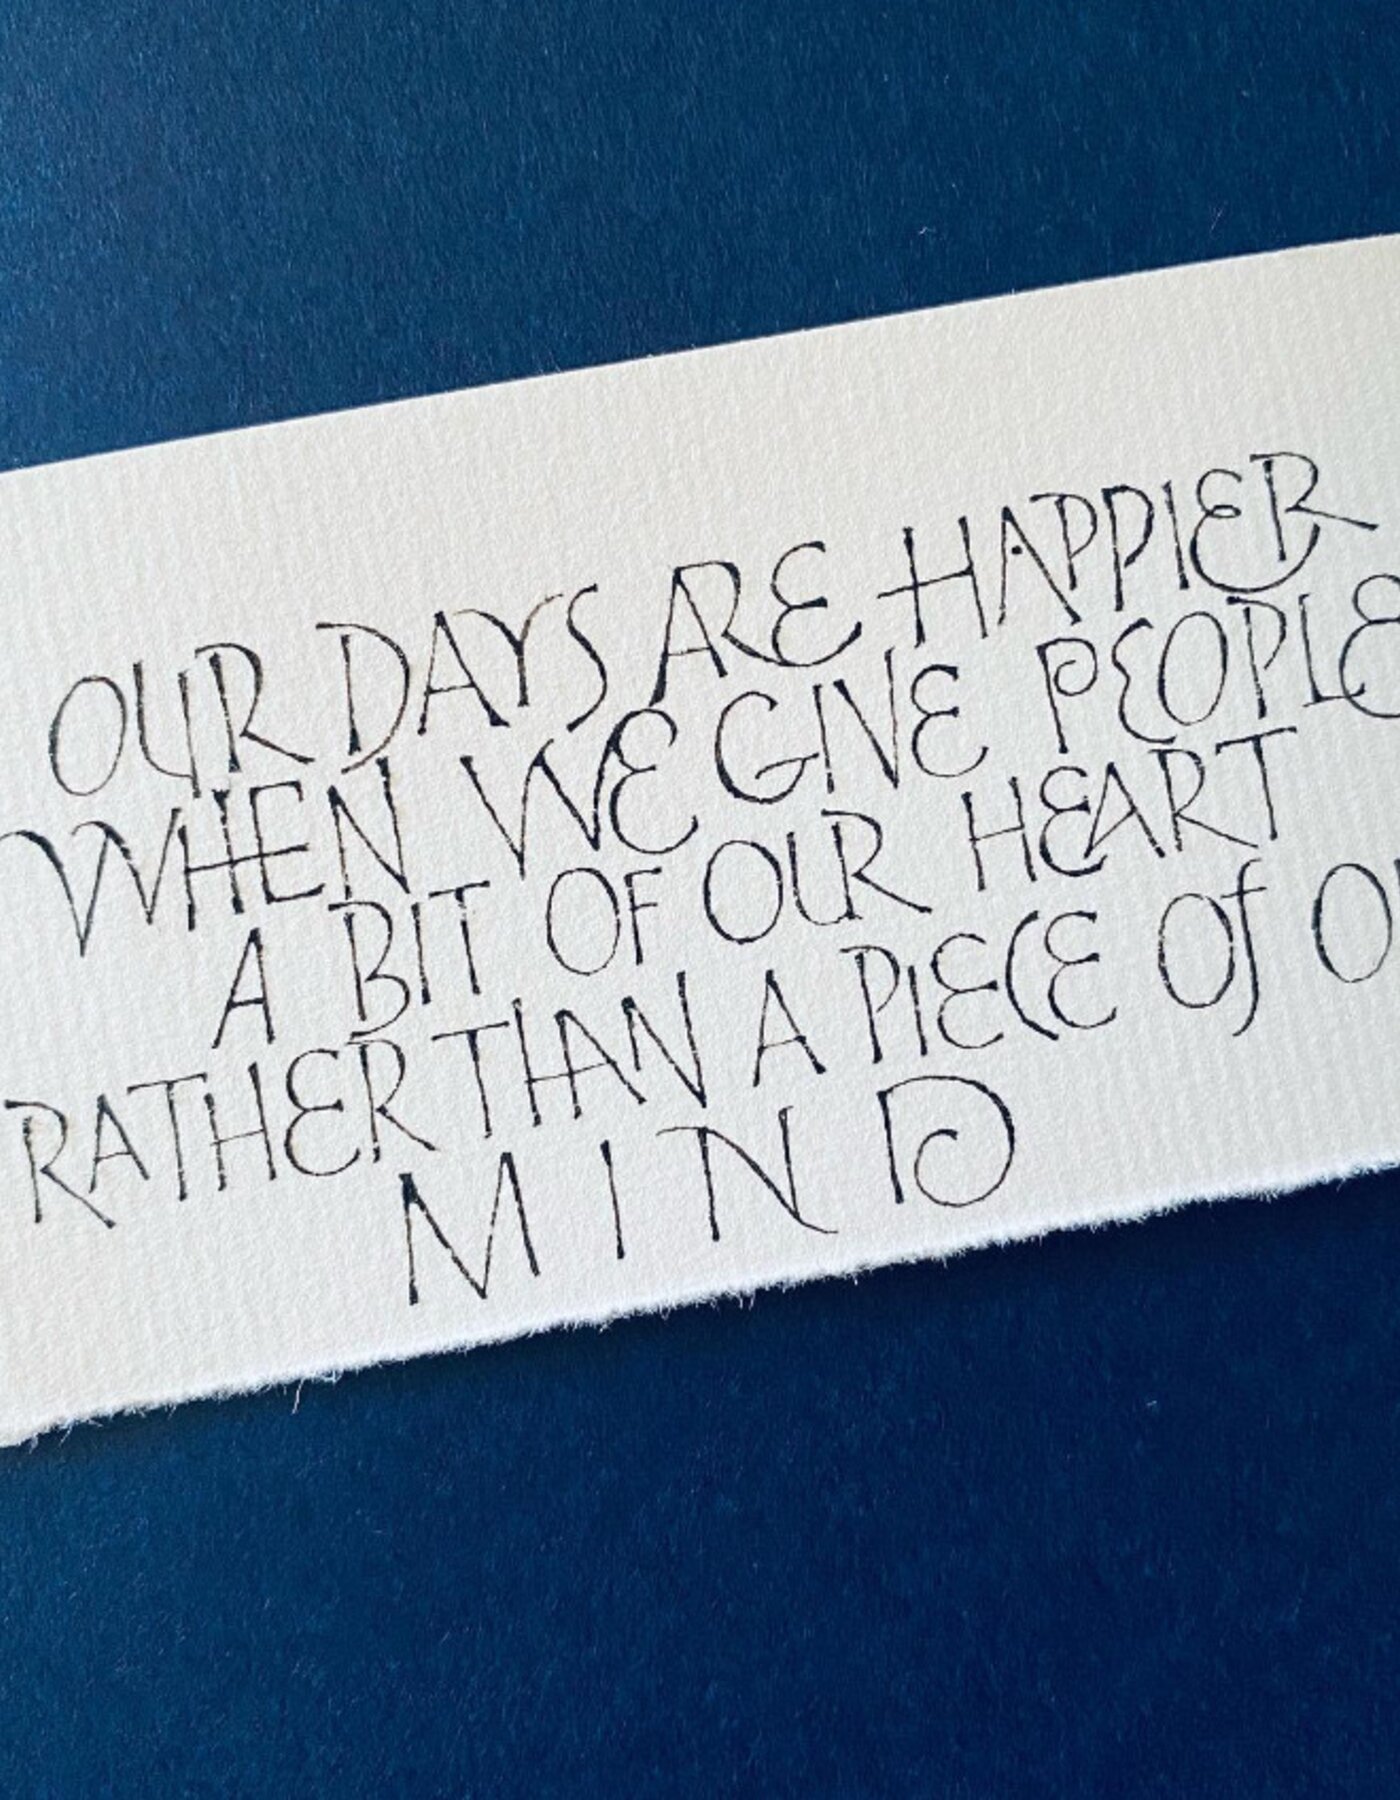 OUR DAYS ARE HAPPIER
WHEN WE GIVE PEOPLE
A BIT OF OUR HEART
RATHER THAN A PIECE Of
MIND